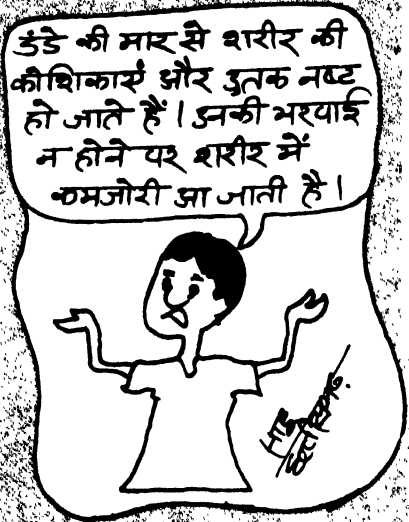 डंडे की मार से शरीर की
कोशिकाएं और उतक नष्ट
हो जाते हैं। उनकी भरपाई
न होने पर शरीर में
कमजोरी आ जाती है।